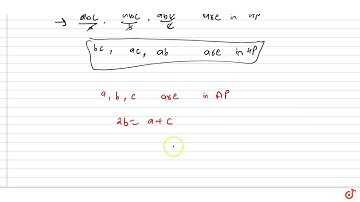 → abc/a, abc/b, abc/c are in AP
bc, ac, ab are in AP
a, b, c are in AP
2b = a+c